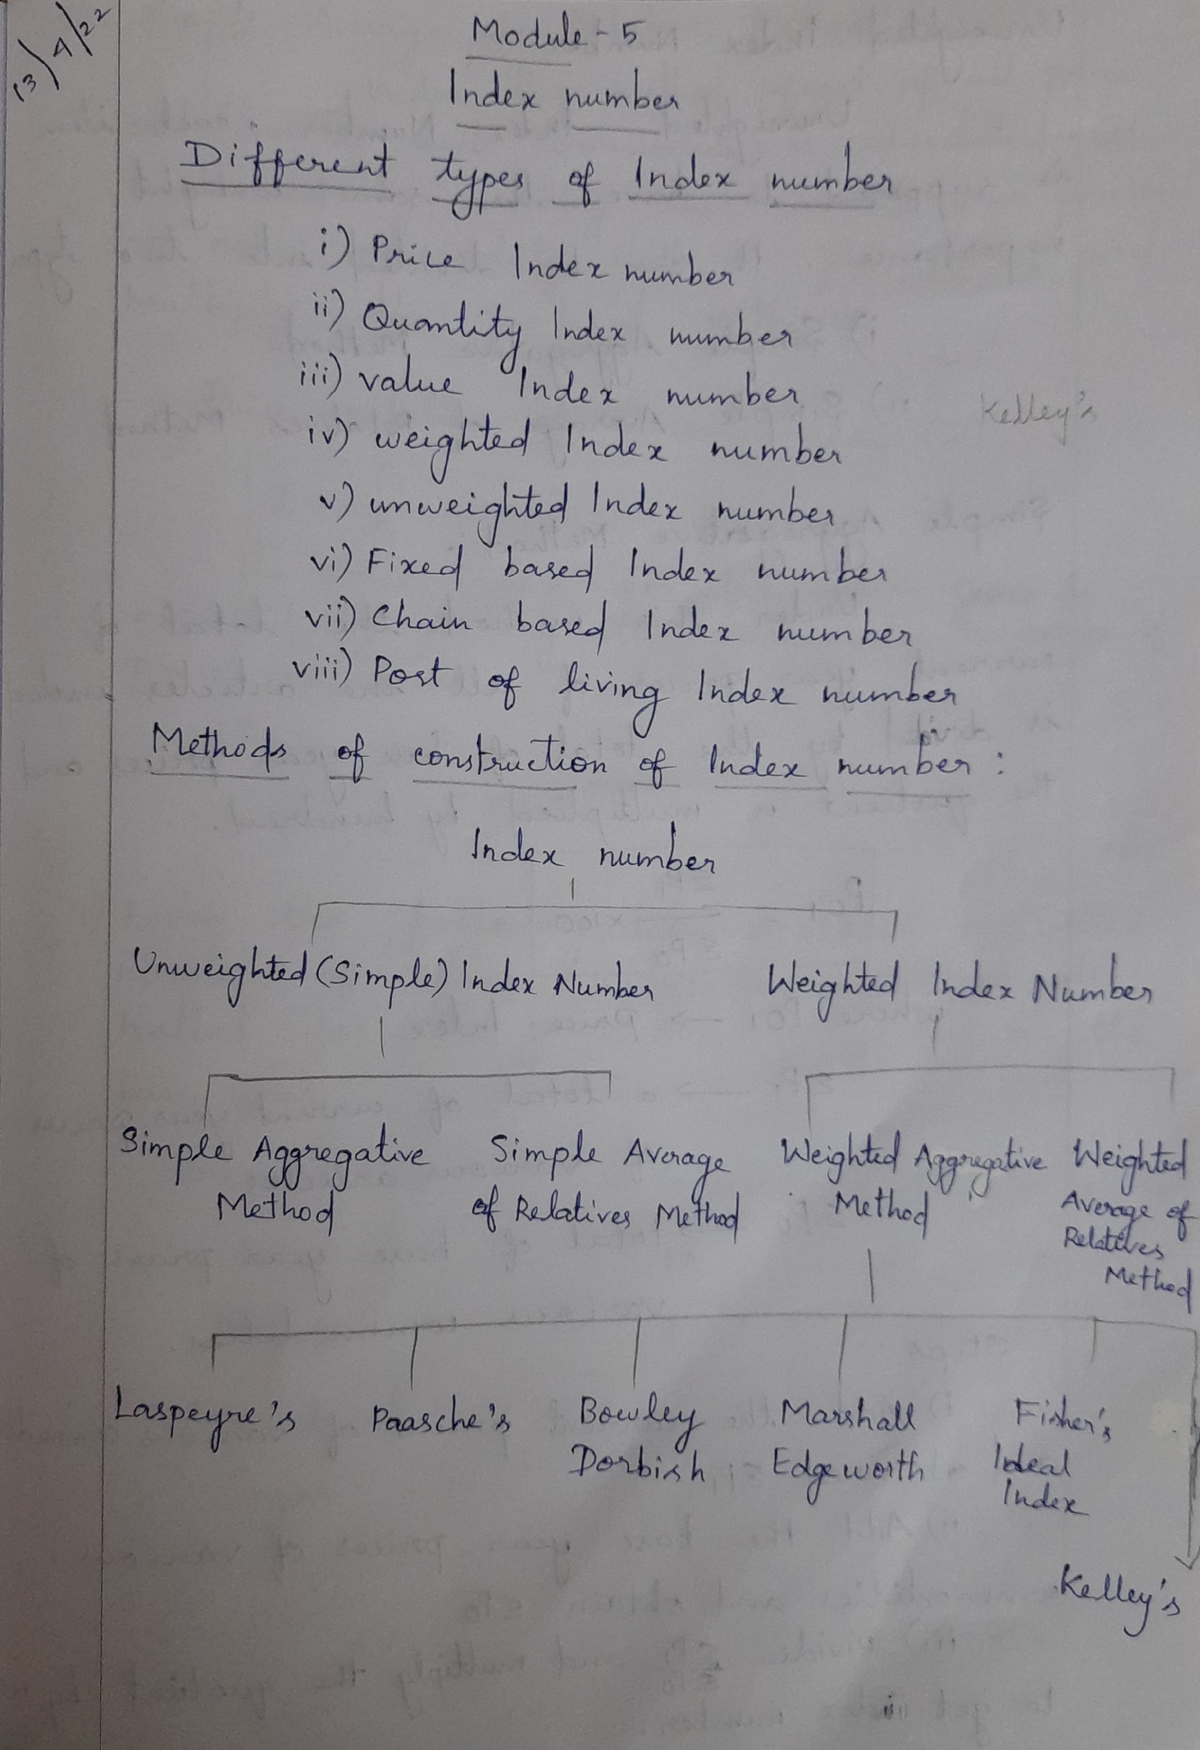 13/4/22
Module - 5
Index number
Different types of Index number
i) Price Index number
ii) Quantity Index number
iii) value Index number
iv) weighted Index number
v) unweighted Index number
vi) Fixed based Index number
vii) Chain based Index number
viii) Post of living Index number
Kelley's
Methods of construction of Index number :
Index number
Unweighted (Simple) Index Number
Weighted Index Number
Simple Aggregative
Method
Simple Average
of Relatives Method
Weighted Aggregative
Method
Weighted
Average of
Relatives
Method
Laspeyre's
Paasche's
Bowley
Dorbish
Marshall
Edgeworth
Fisher's
Ideal
Index
Kelley's